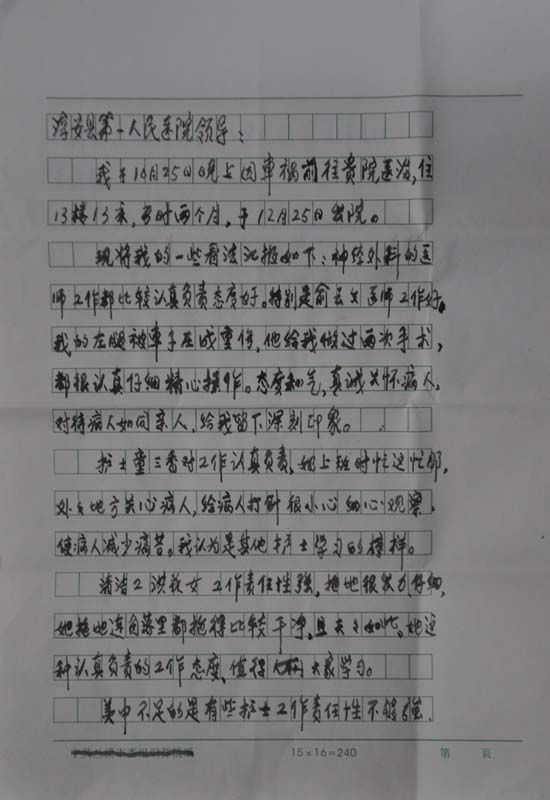 淳安县第一人民医院领导：
我于10月25日晚上因车祸前往贵院医治，住
13楼13床，历时两个月，于12月25日出院。
现将我的一些看法汇报如下：神经外科的医
师工作都比较认真负责态度好。特别是俞云文医师工作好，
我的左腿被车子压成重伤，他给我做过两次手术，
都很认真仔细精心操作。态度和气，真诚关怀病人，
对待病人如同亲人，给我留下深刻印象。
护士童三香对工作认真负责，她上班时忙这忙那，
处处地方关心病人，给病人打针很小心细心观察，
使病人减少痛苦。我认为是其他护士学习的榜样。
清洁工洪秋女工作责任性强，拖地很发力仔细，
她拖地连角落里都拖得比较干净，且天天如此。她这
种认真负责的工作态度，值得大家学习。
美中不足的是有些护士工作责任性不够强，
15×16=240
第 页